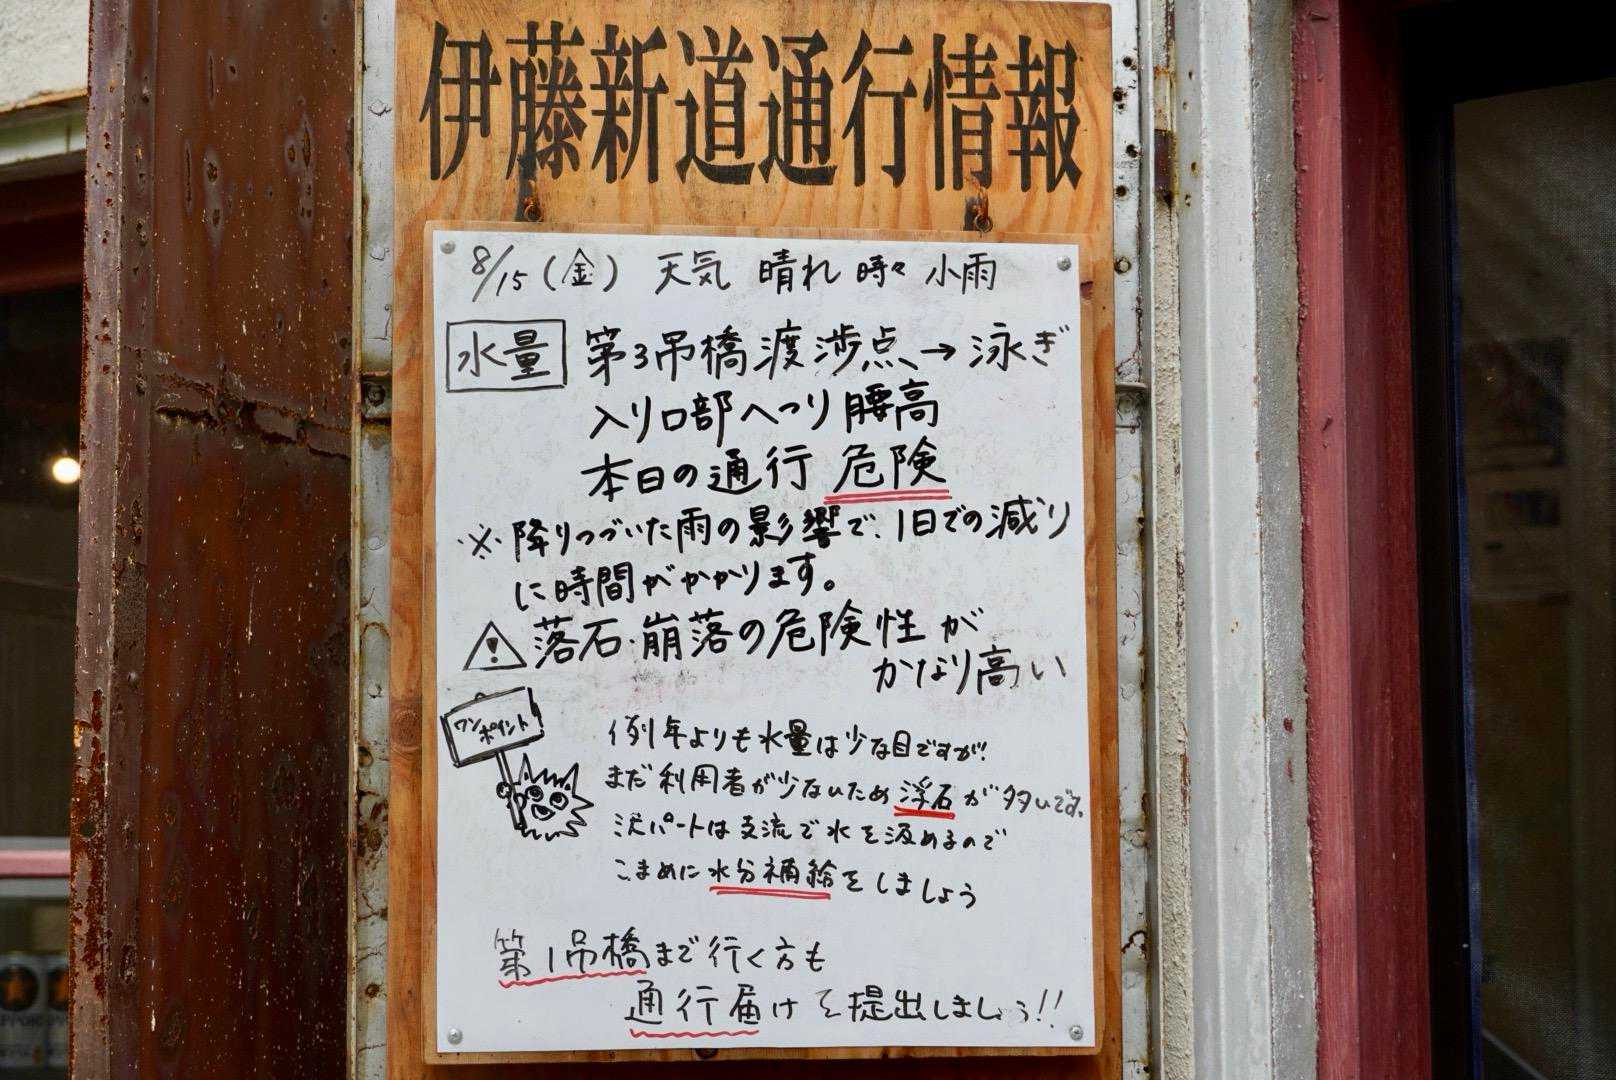 伊藤新道通行情報
8/15(金) 天気 晴れ 時々 小雨
水量 第3吊橋渡渉点→泳ぎ
入り口部へつり腰高
本日の通行 危険
※降りつづいた雨の影響で、1日での減り
に時間がかかります。
⚠落石・崩落の危険性が
かなり高い
ワンポイント
例年よりも水量は少な目ですが!
まだ利用者が少ないため浮石が多いです。
沢パートは支流で水を汲めるので
こまめに水分補給をしましょう
第1吊橋まで行く方も
通行届けを提出しましょう!!